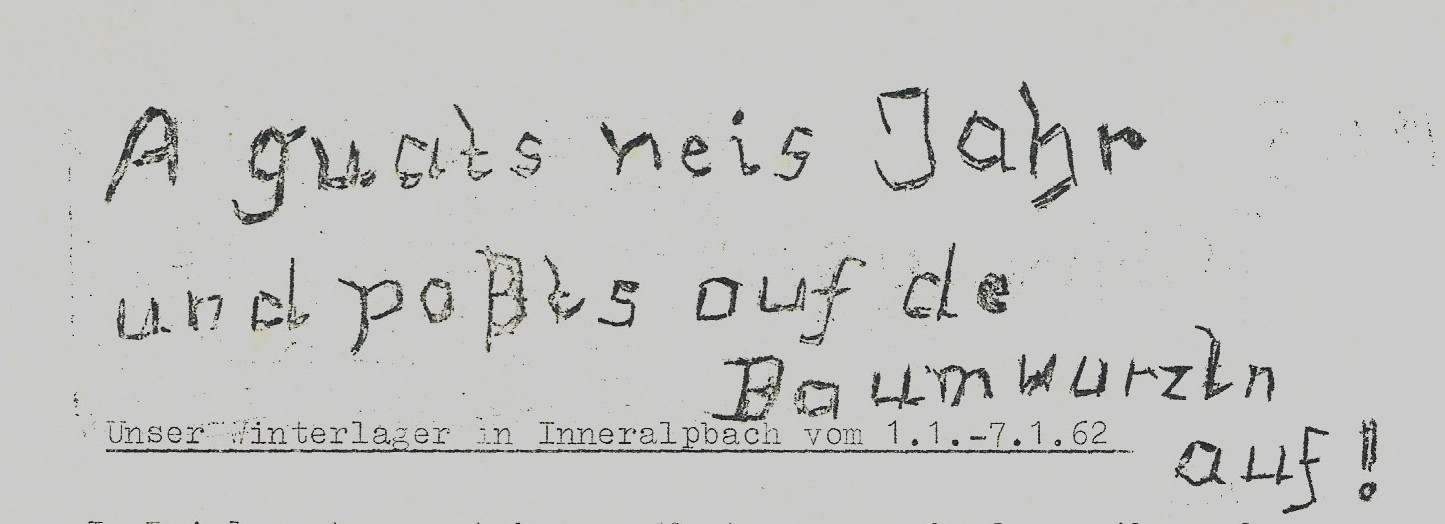 A guats neis Jahr
und poßts auf de
Baumwurzln
Unser Winterlager in Inneralpbach vom 1.1.-7.1.62
auf!